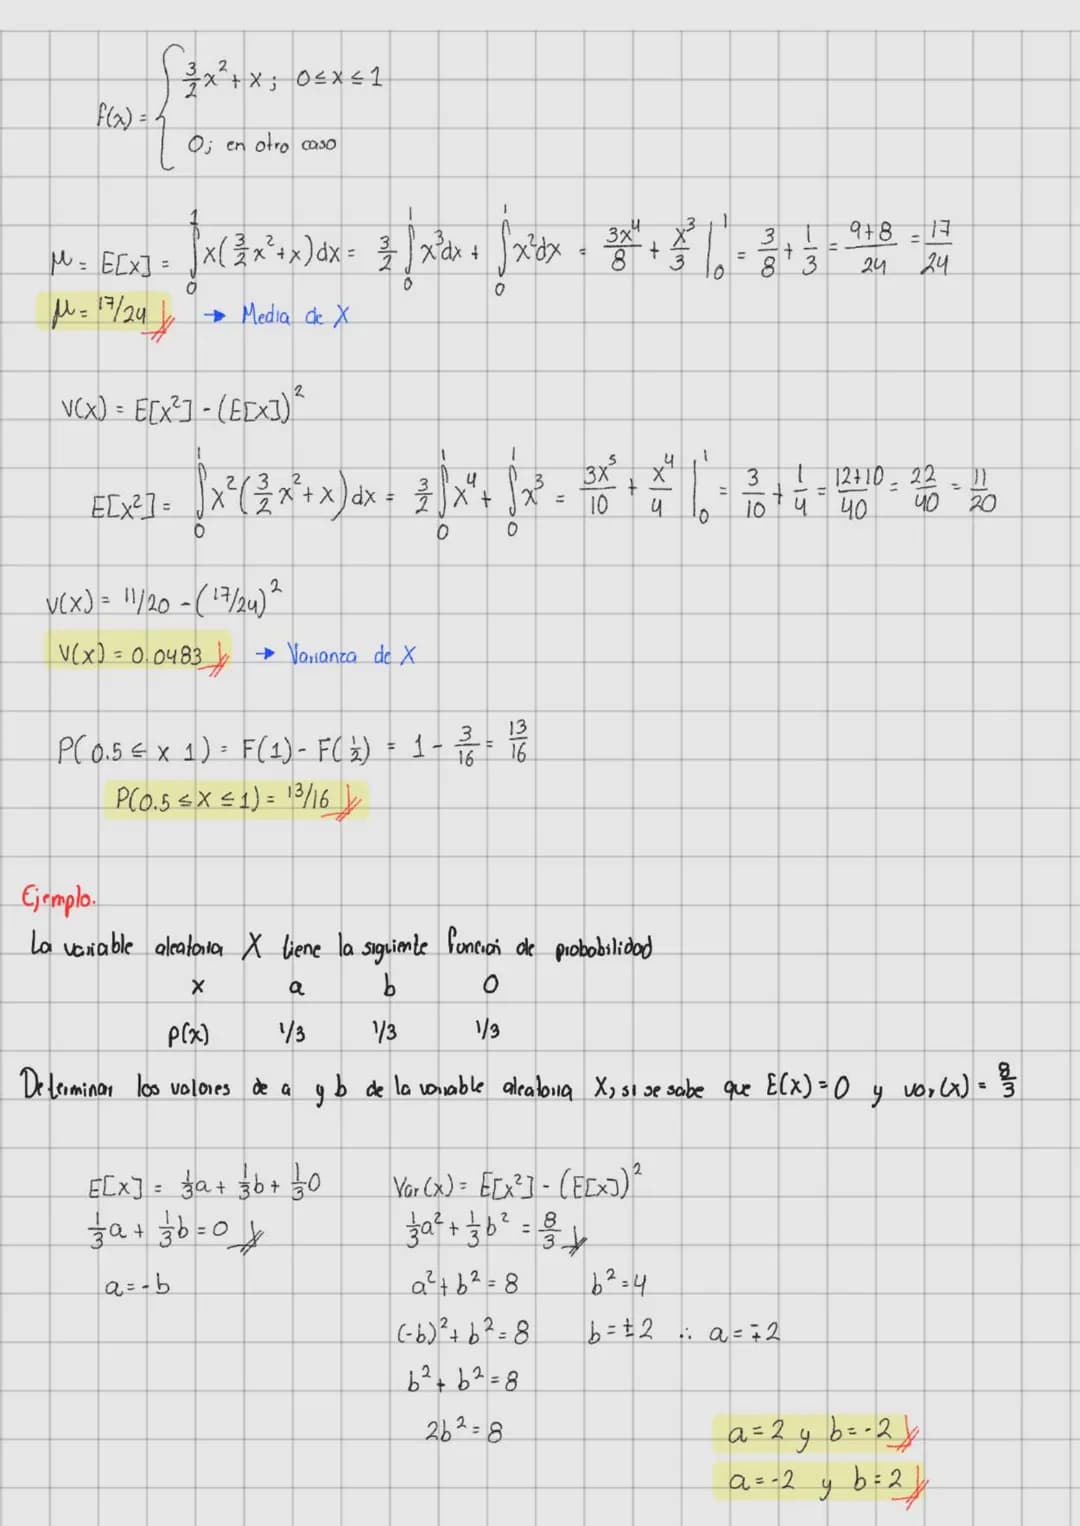 f(x) = { 3/2 x² + x ; 0 ≤ x ≤ 1
0; en otro caso
μ = E[x] = ∫₀¹ x(3/2 x² + x)dx = 3/2 ∫₀¹ x³dx + ∫₀¹ x²dx = 3x⁴/8 + x³/3 |₀¹ = 3/8 + 1/3 = 9+8/24 = 17/24
μ = 17/24 → Media de X
V(x) = E[x²] - (E[x])²
E[x²] = ∫₀¹ x²(3/2 x² + x)dx = 3/2 ∫₀¹ x⁴ + ∫₀¹ x³ = 3x⁵/10 + x⁴/4 |₀¹ = 3/10 + 1/4 = 12+10/40 = 22/40 = 11/20
V(x) = 11/20 - (17/24)²
V(x) = 0.0483 → Varianza de X
P(0.5 ≤ x 1) = F(1) - F(1/2) = 1 - 3/16 = 13/16
P(0.5 ≤ X ≤ 1) = 13/16
Ejemplo.
La variable aleatoria X tiene la siguiente función de probabilidad
x a b 0
p(x) 1/3 1/3 1/3
Determinar los valores de a y b de la variable aleatoria X, si se sabe que E(x) = 0 y var(x) = 8/3
E[x] = 1/3 a + 1/3 b + 1/3 0 Var(x) = E[x²] - (E[x])²
1/3 a + 1/3 b = 0 1/3 a² + 1/3 b² = 8/3
a = -b a² + b² = 8 b² = 4
(-b)² + b² = 8 b = ±2 ∴ a = ∓2
b² + b² = 8
2b² = 8 a = 2 y b = -2
a = -2 y b = 2